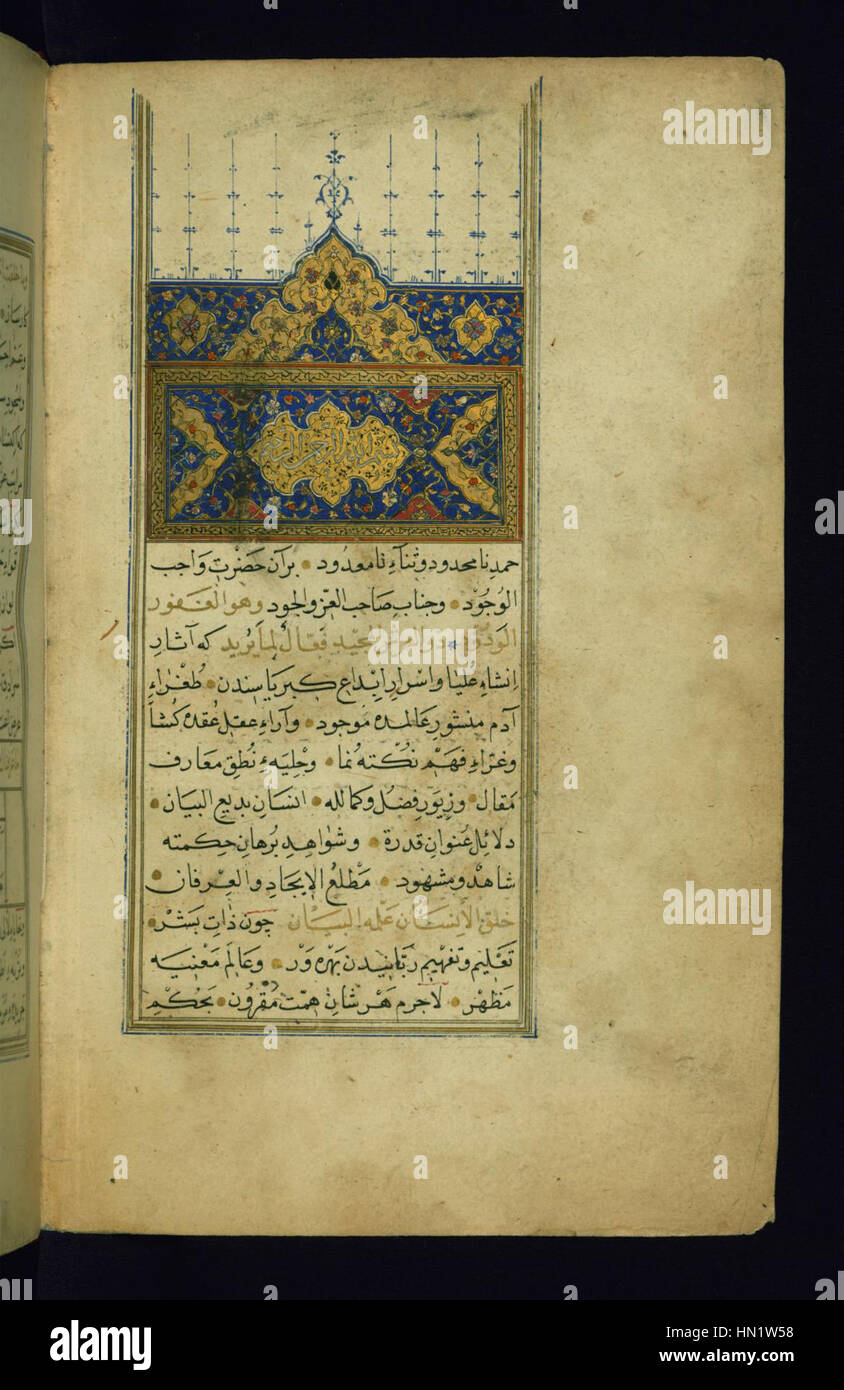 بسم الله الرحمن الرحيم
حمد نامحدود وثناء نامعدود برآن حضرت واجب
الوجود وجناب صاحب العز والجود وهو الغفور
الودود ذو العرش المجيد فعال لما يريد كه آثار
انشاء عليا واسرار ابداع كبرياسندن طغراء
آدم منشور عالمده موجود وآراء عقل عقده كشا
وغراء فهم نكته نما وحليه نطق معارف
مقال وزيور فضل وكمالله انسان بديع البيان
دلائل عنوان قدرة وشواهد برهان حكمته
شاهد ومشهود مطلع الايجاد والعرفان
خلق الانسان علمه البيان چون ذات بشر
تعليم وتفهيم ربانيدن بهره ور وعالم معنيه
مظهر لاجرم هر شان همت مقرون بحكم
alamy
a
alamy
HN1W58
www.alamy.com